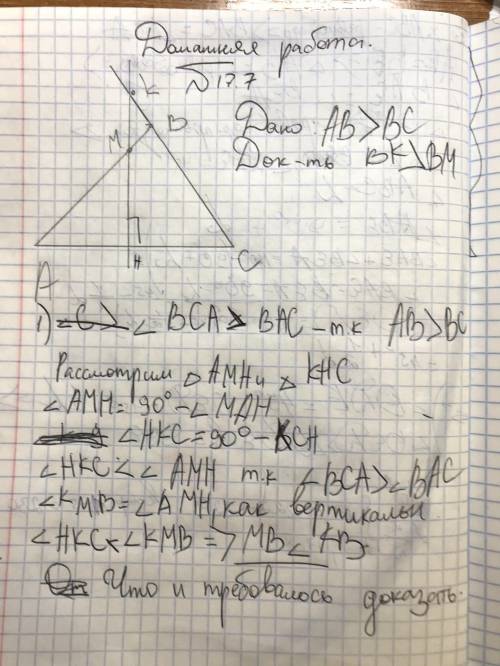 Домашняя работа.
№17.7
K
B
M
Дано: AB>BC
Док-ть BK>BM
A
H
C
1) ∠BCA > BAC - т.к AB>BC
Рассмотрим △AMH и △KHC
∠AMH = 90° - ∠MAH
∠HKC = 90° - KCH
∠HKC < ∠AMH т.к ∠BCA > ∠BAC
∠KMB = ∠AMH, как вертикальн
∠HKC < ∠KMB => MB < KB
Что и требовалось доказать.